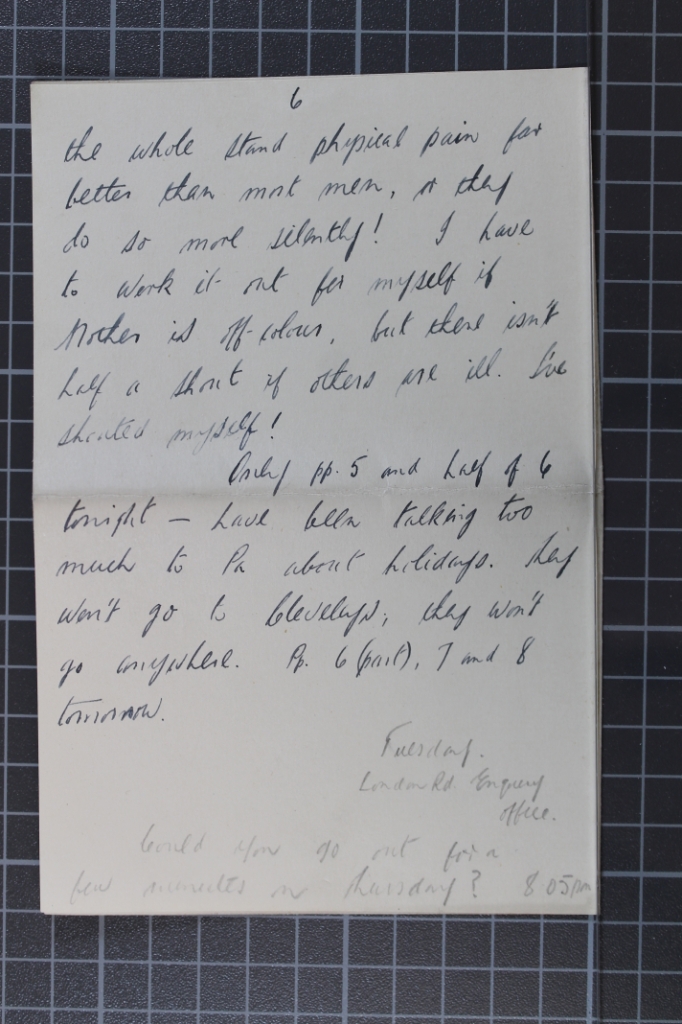 6
the whole stand physical pain far
better than most men, or they
do so more silently! I have
to work it out for myself if
Mother is off-colour, but there isn't
half a shout if others are ill. I've
shouted myself!
Only pp. 5 and half of 6
tonight — have been talking too
much to Pa about holidays. They
won't go to Cleveleys; they won't
go anywhere. Pp. 6 (part), 7 and 8
tomorrow.
Tuesday.
London Rd. Enquiry
Office.
Could you go out for a
few minutes on Thursday? 8.05pm